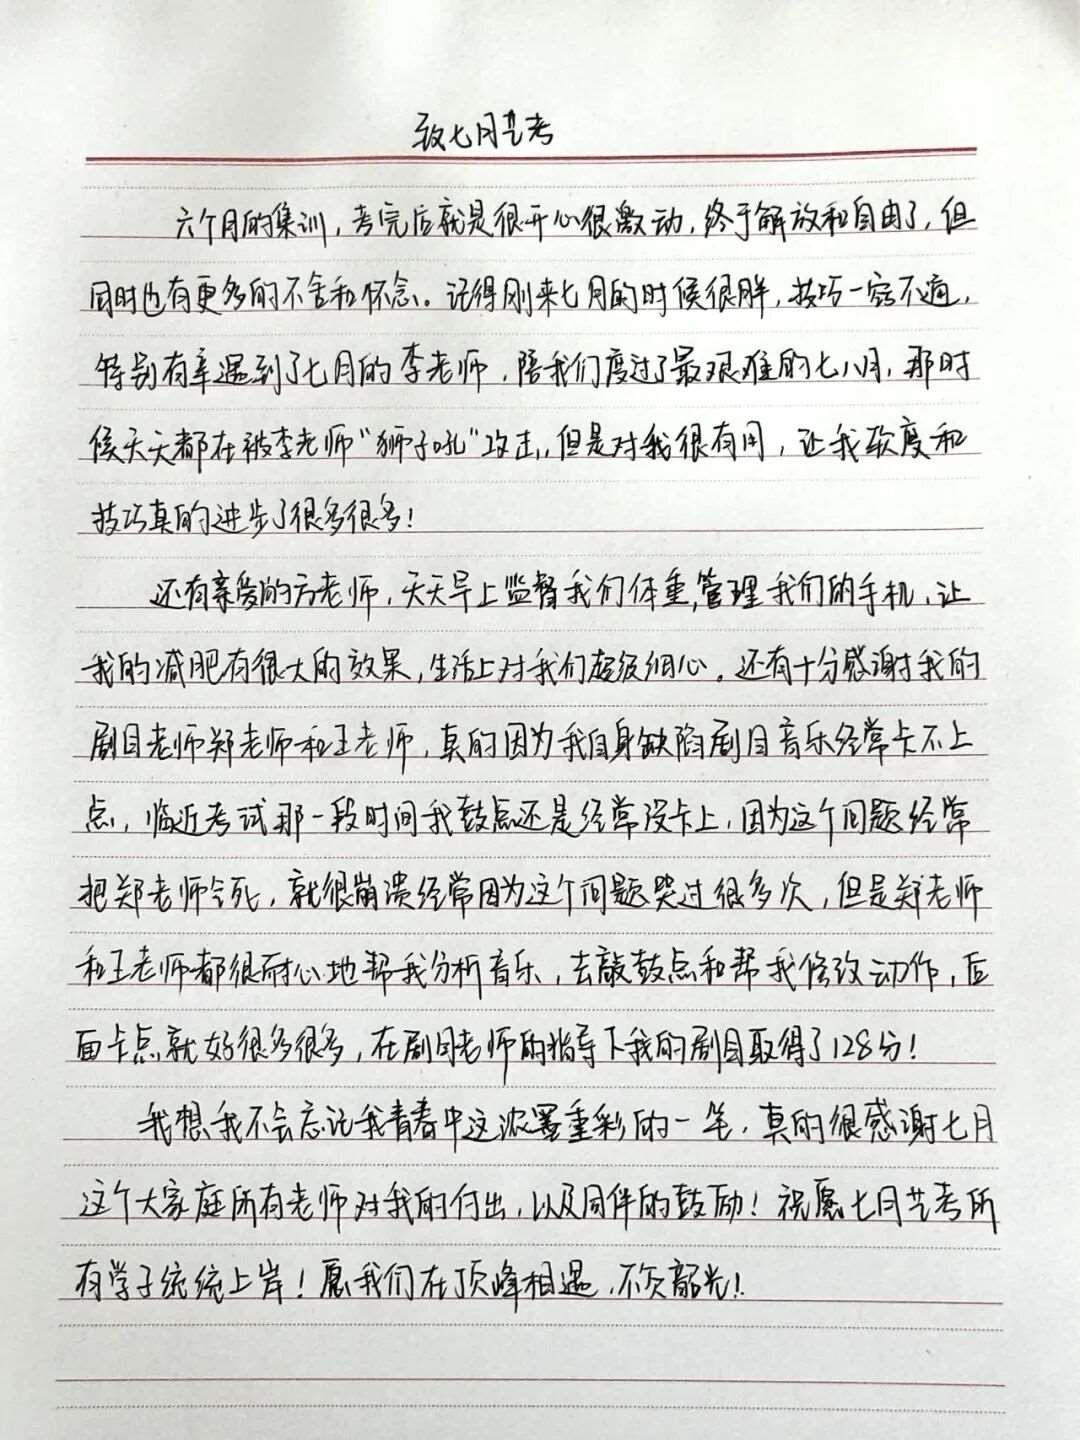 致七月艺考
六个月的集训，考完后就是很开心很激动，终于解放和自由了，但
同时也有更多的不舍和怀念。记得刚来七月的时候很胖，技巧一窍不通，
特别有幸遇到了七月的李老师，陪我们度过了最艰难的七八月，那时
候天天都在被李老师“狮子吼”攻击，但是对我很有用，让我软度和
技巧真的进步了很多很多！
还有亲爱的方老师，天天早上监督我们体重，管理我们的手机，让
我的减肥有很大的效果，生活上对我们超级细心。还有十分感谢我的
剧目老师郑老师和王老师，真的因为我自身缺陷剧目音乐经常卡不上
点，临近考试那一段时间我鼓点还是经常没卡上，因为这个问题经常
把郑老师气死，就很崩溃经常因为这个问题哭过很多次，但是郑老师
和王老师都很耐心地帮我分析音乐，去敲鼓点和帮我修改动作，后
面卡点就好很多很多，在剧目老师的指导下我的剧目取得了128分！
我想我不会忘记我青春中这浓墨重彩的一笔，真的很感谢七月
这个大家庭所有老师对我的付出，以及同伴的鼓励！祝愿七月艺考所
有学子统统上岸！愿我们在顶峰相遇，不负韶光！